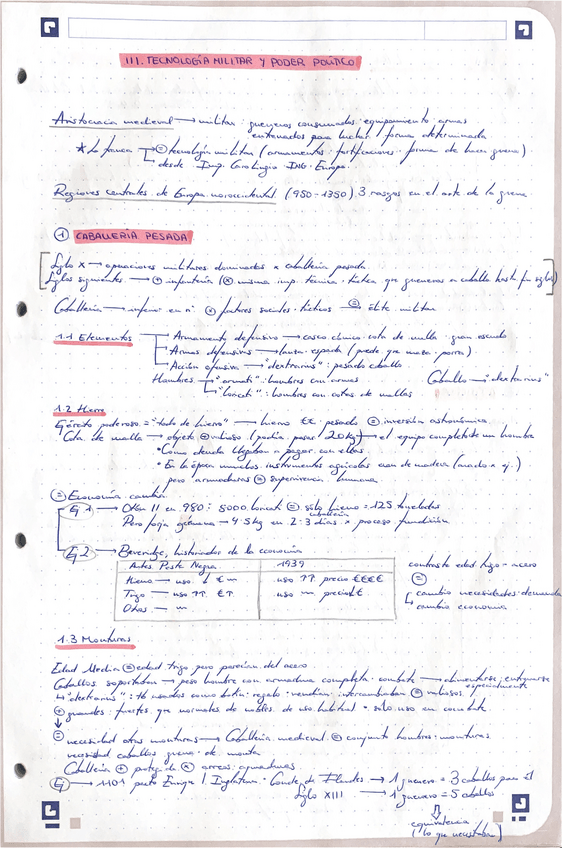 III. TECNOLOGÍA MILITAR Y PODER POLÍTICO
Aristocracia medieval → militar · guerreros consumados · equipamiento · armas
entrenados para luchar / forma determinada
desde Imp. Carolingio · Europa
Regiones centrales de Europa noroccidental (950-1350) 3 rasgos en el arte de la guerra
① CABALLERÍA PESADA
Siglo X → operaciones militares dominadas x caballería pesada
Siglos siguientes → ⊕ infantería (⊗ misma imp. técnica · táctica que guerreros a caballo hasta fin siglo)
Caballería → inferior en nº ⊕ factores sociales · tácticos ⊜ élite militar
1.1 Elementos
Armamento defensivo → casco cónico · cota de malla · gran escudo
→ lanza · espada (puede que maza · porra)
Acción ofensiva → "dextrarius" : pesado caballo
Hombres → "armati" : hombres con armas
Caballo → "dextrarius"
"loricati" : hombres con cotas de mallas
1.2 Hierro
Ejército poderoso = "todo de hierro" → hierro €€ · pesado ⊜ inversión astronómica
Cota de malla → objeto ⊕ valioso (podía pesar 20kg) → el equipo completo de un hombre
• Como deuda llegaban a pagar con ellas
• En la época muchos instrumentos agrícolas eran de madera (arado x ej.)
pero armaduras ⊜ supervivencia humana
⊜ Economía cambia
Ej 1 → Otón II en 980: 5000 loricati ⊜ sólo hierro = 125 toneladas
caballería
Pero forja germana → 4·5kg en 2·3 días x proceso fundición
Ej 2 → Beveridge, historiador de la economía
Antes Peste Negra
1939
Hierro — uso ↓ € m
uso ↑↑ precio €€€€
Trigo — uso ↑↑ €↑
uso m precio↓€
Otros — m
contraste edad trigo - acero
⊜
cambio necesidades · demanda
cambio economía
1.3 Monturas
Edad Media ⊜ edad trigo pero parecían del acero
Caballos soportaban → peso hombre con armadura completa · combate → alimentarse · entrenarse
especialmente
"dextrarius" : tb usados como botín · regalo · vendían · intercambiaban ⊜ valiosos
⊕ grandes · fuertes que normales de nobles de uso habitual · sólo uso en combate
⊜ necesidad otras monturas → Caballería medieval ⊜ conjunto hombres · monturas
necesidad caballos guerra · de monta
Caballería ⊕ proteg. de ⊗ arreos · armaduras
Ej → 1101 pacto Enrique I Inglaterra · Conde de Flandes → 1 guerrero = 3 caballos para él
Siglo XIII → 1 guerrero = 5 caballos
equivalencia
(lo que necesitaba)